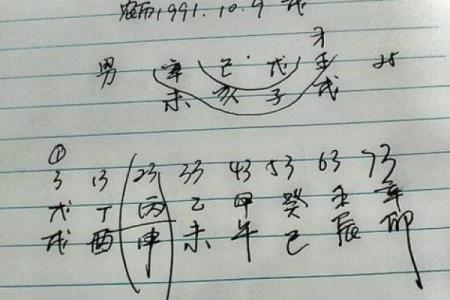 农历1991.10.9 戌
才
男 辛 己 戊 壬 25
未 亥 子 戌
①
3 13 23 33 43 53 63 73
戊 丁 丙 乙 甲 癸 壬 辛
戌 酉 申 未 午 巳 辰 卯